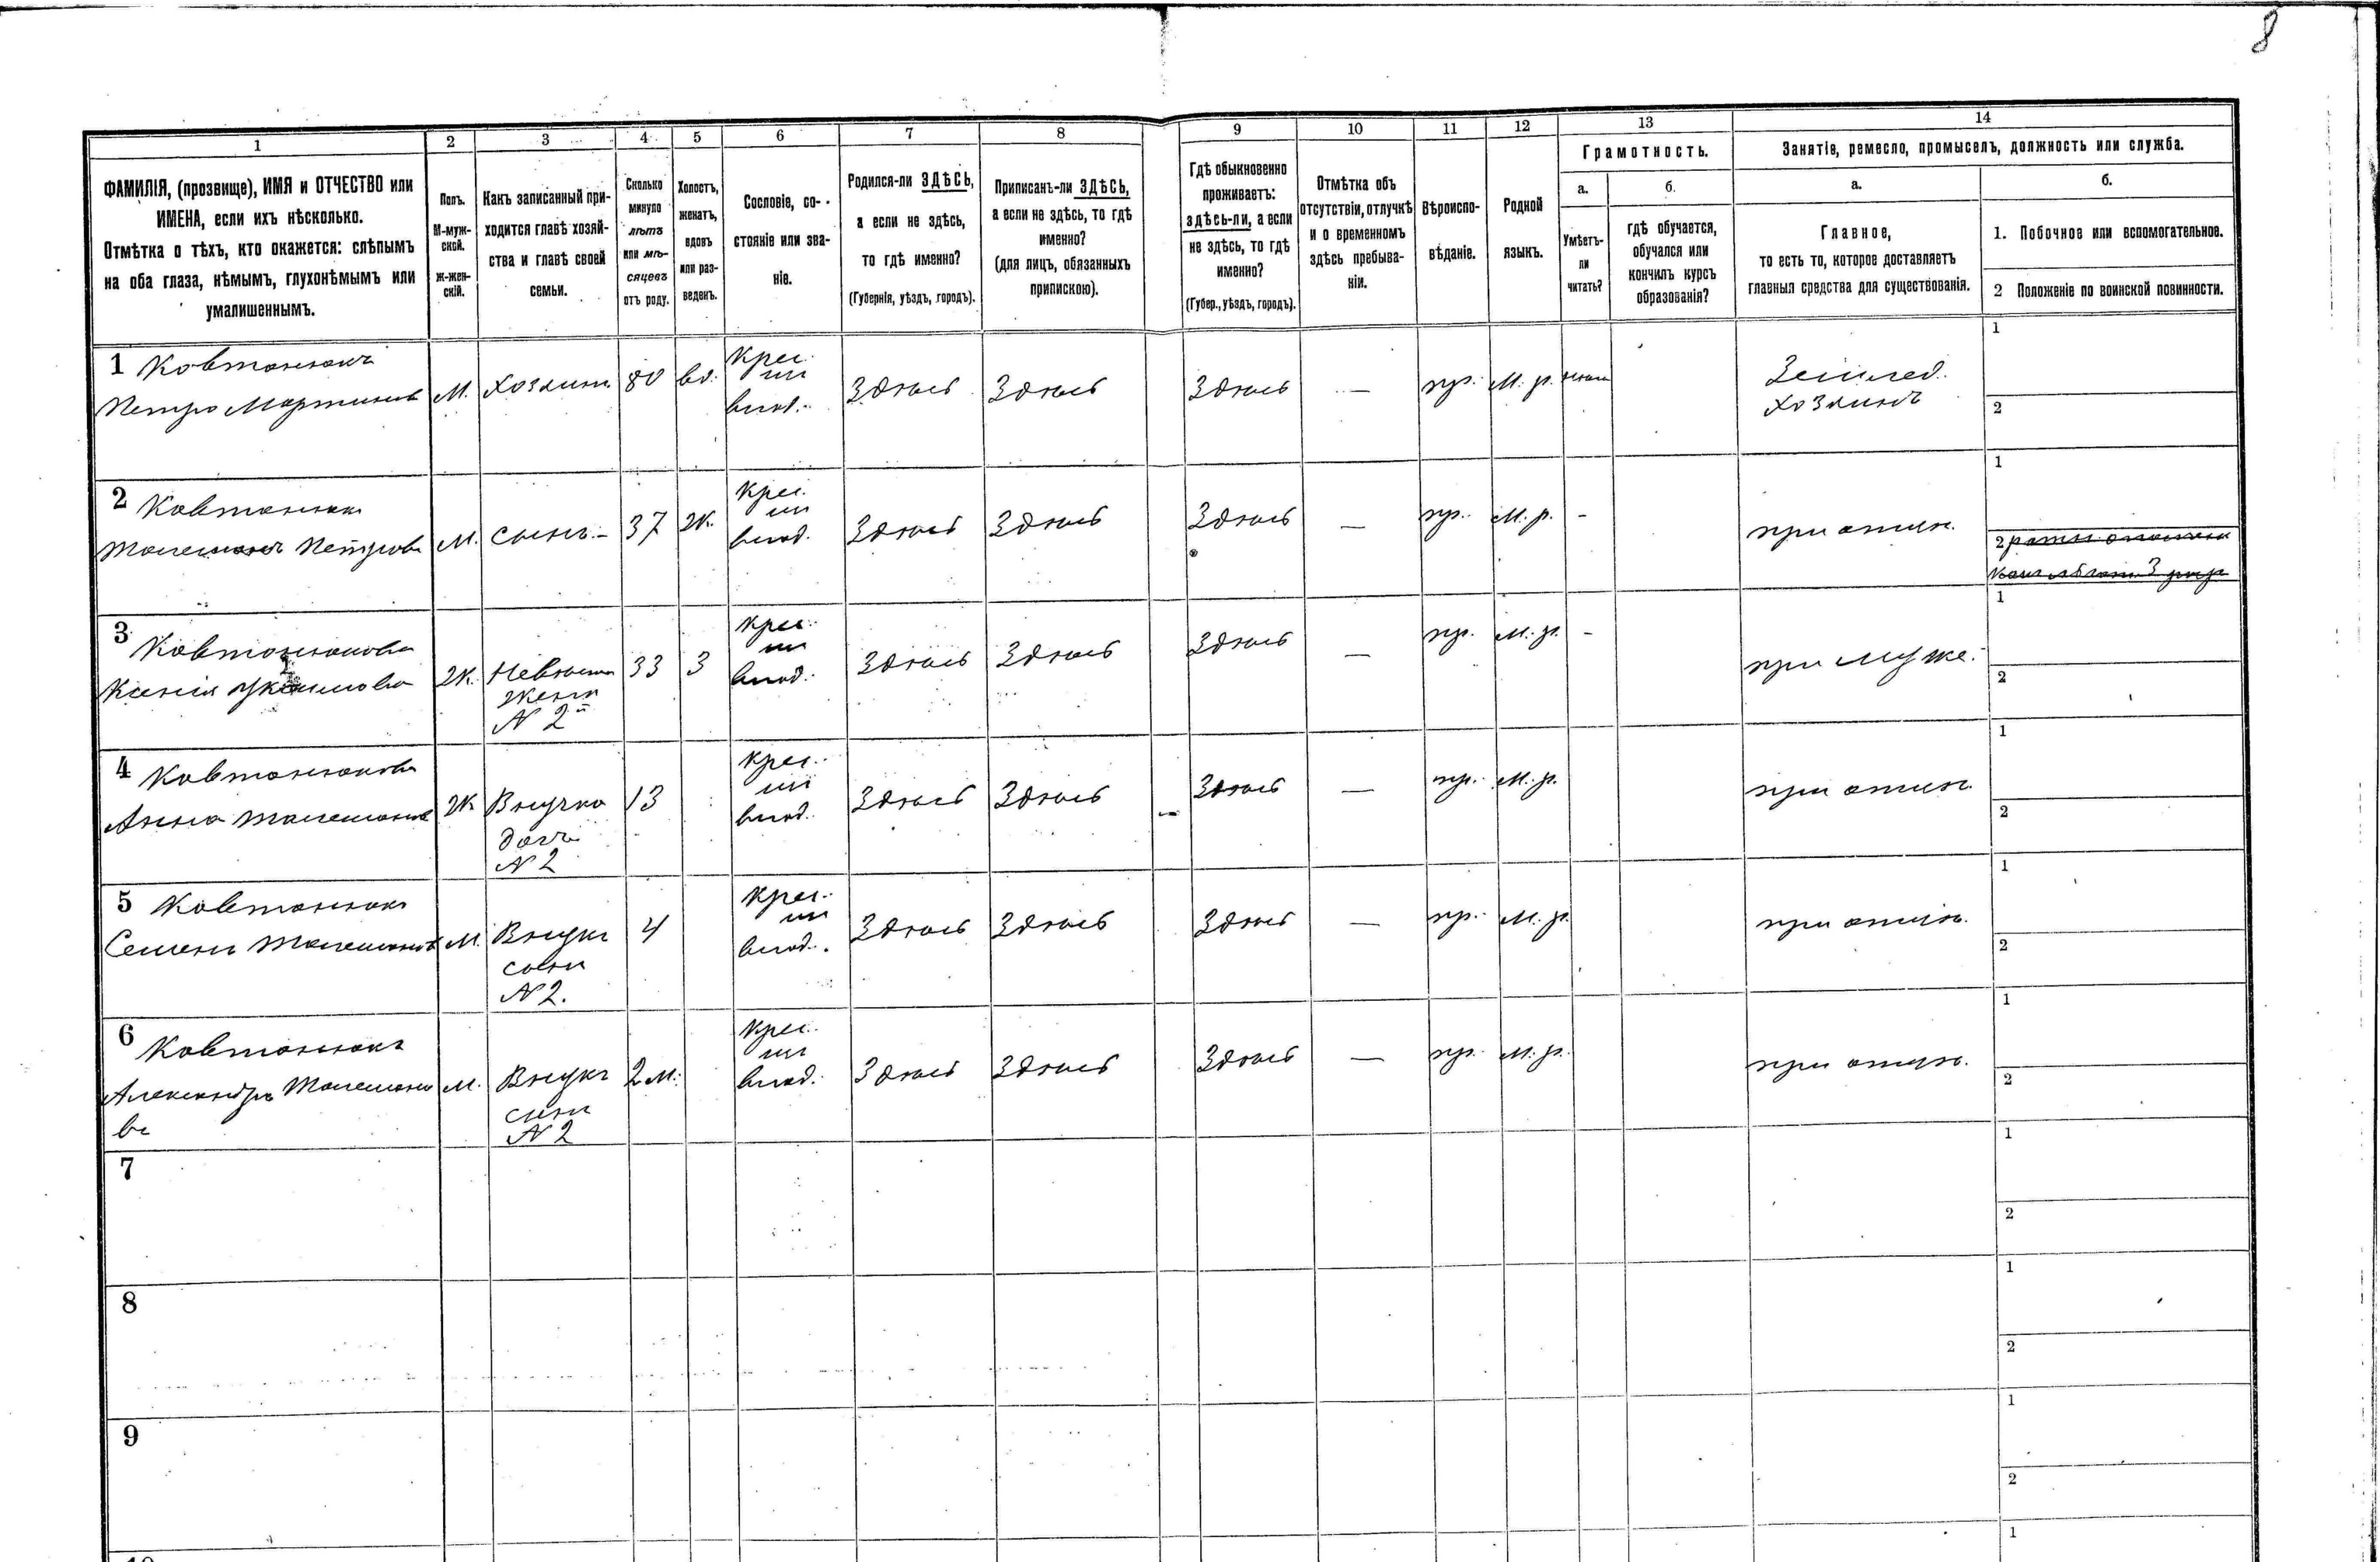 8
1 2 3 4 5 6 7 8 9 10 11 12 13 14
ФАМИЛІЯ, (прозвище), ИМЯ и ОТЧЕСТВО или
ИМЕНА, если ихъ нѣсколько.
Отмѣтка о тѣхъ, кто окажется: слѣпымъ
на оба глаза, нѣмымъ, глухонѣмымъ или
умалишеннымъ.
Полъ.
М-муж-
ской.
ж-жен-
скій.
Какъ записанный при-
ходится главѣ хозяй-
ства и главѣ своей
семьи.
Сколько
минуло
лѣтъ
или мѣ-
сяцевъ
отъ роду.
Холостъ,
женатъ,
вдовъ
или раз-
веденъ.
Сословіе, со-
стояніе или зва-
ніе.
Родился-ли ЗДѢСЬ,
а если не здѣсь,
то гдѣ именно?
(Губернія, уѣздъ, городъ).
Приписанъ-ли ЗДѢСЬ,
а если не здѣсь, то гдѣ
именно?
(для лицъ, обязанныхъ
припискою).
Гдѣ обыкновенно
проживаетъ:
здѣсь-ли, а если
не здѣсь, то гдѣ
именно?
(Губер., уѣздъ, городъ).
Отмѣтка объ
отсутствіи, отлучкѣ
и о временномъ
здѣсь пребыва-
ніи.
Вѣроиспо-
вѣданіе.
Родной
языкъ.
Грамотность.
а.
Умѣетъ-
ли
читать?
б.
гдѣ обучается,
обучался или
кончилъ курсъ
образованія?
Занятіе, ремесло, промыселъ, должность или служба.
а.
Главное,
то есть то, которое доставляетъ
главныя средства для существованія.
б.
1. Побочное или вспомогательное.
2 Положеніе по воинской повинности.
1 Ковтонюкъ
Петро Мартинов
М.
Хозяин
80
вд.
Крес.
из
влад.
Здѣсь
Здѣсь
Здѣсь
—
пр.
М. р.
Землед.
Хозяинъ
1
2
2 Ковтонюк
Петров
М.
сынъ.-
37
Ж.
Крес.
из
влад.
Здѣсь
Здѣсь
Здѣсь
—
пр.
М. р.
-
при отцѣ.
1
2
3
Ковтонюкова
Ксенія
Ж.
Невѣстка
жена
N 2й
33
З
Крес.
из
влад.
Здѣсь
Здѣсь
Здѣсь
—
пр.
М. р.
-
при муже.
1
2
4 Ковтонюкова
Анна
Ж
Внучка
дочь
N 2
13
Крес.
из
влад.
Здѣсь
Здѣсь
Здѣсь
—
пр.
М. р.
при отцѣ.
1
2
5 Ковтонюкъ
Семенъ
М.
Внукъ
сынъ
N 2.
4
Крес.
из
влад.
Здѣсь
Здѣсь
Здѣсь
—
пр.
М. р.
при отцѣ.
1
2
6 Ковтонюкъ
Александръ
въ
М.
Внукъ
сынъ
N 2
2 м.
Крес.
из
влад.
Здѣсь
Здѣсь
Здѣсь
—
пр.
М. р.
при отцѣ.
1
2
7
1
2
8
1
2
9
1
2
1